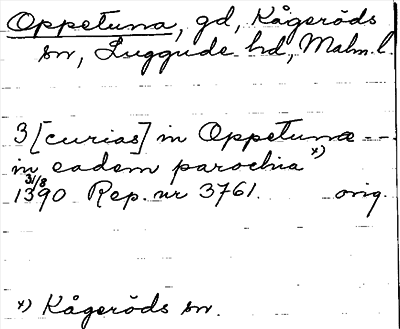 Oppetuna, gd, Kågeröds
sn, Luggude hd, Malm. l.
3 [curias] in Oppetunæ --
in eadem parochia x)
31/8
1390 Rep. nr 3761. orig.
x) Kågeröds sn.